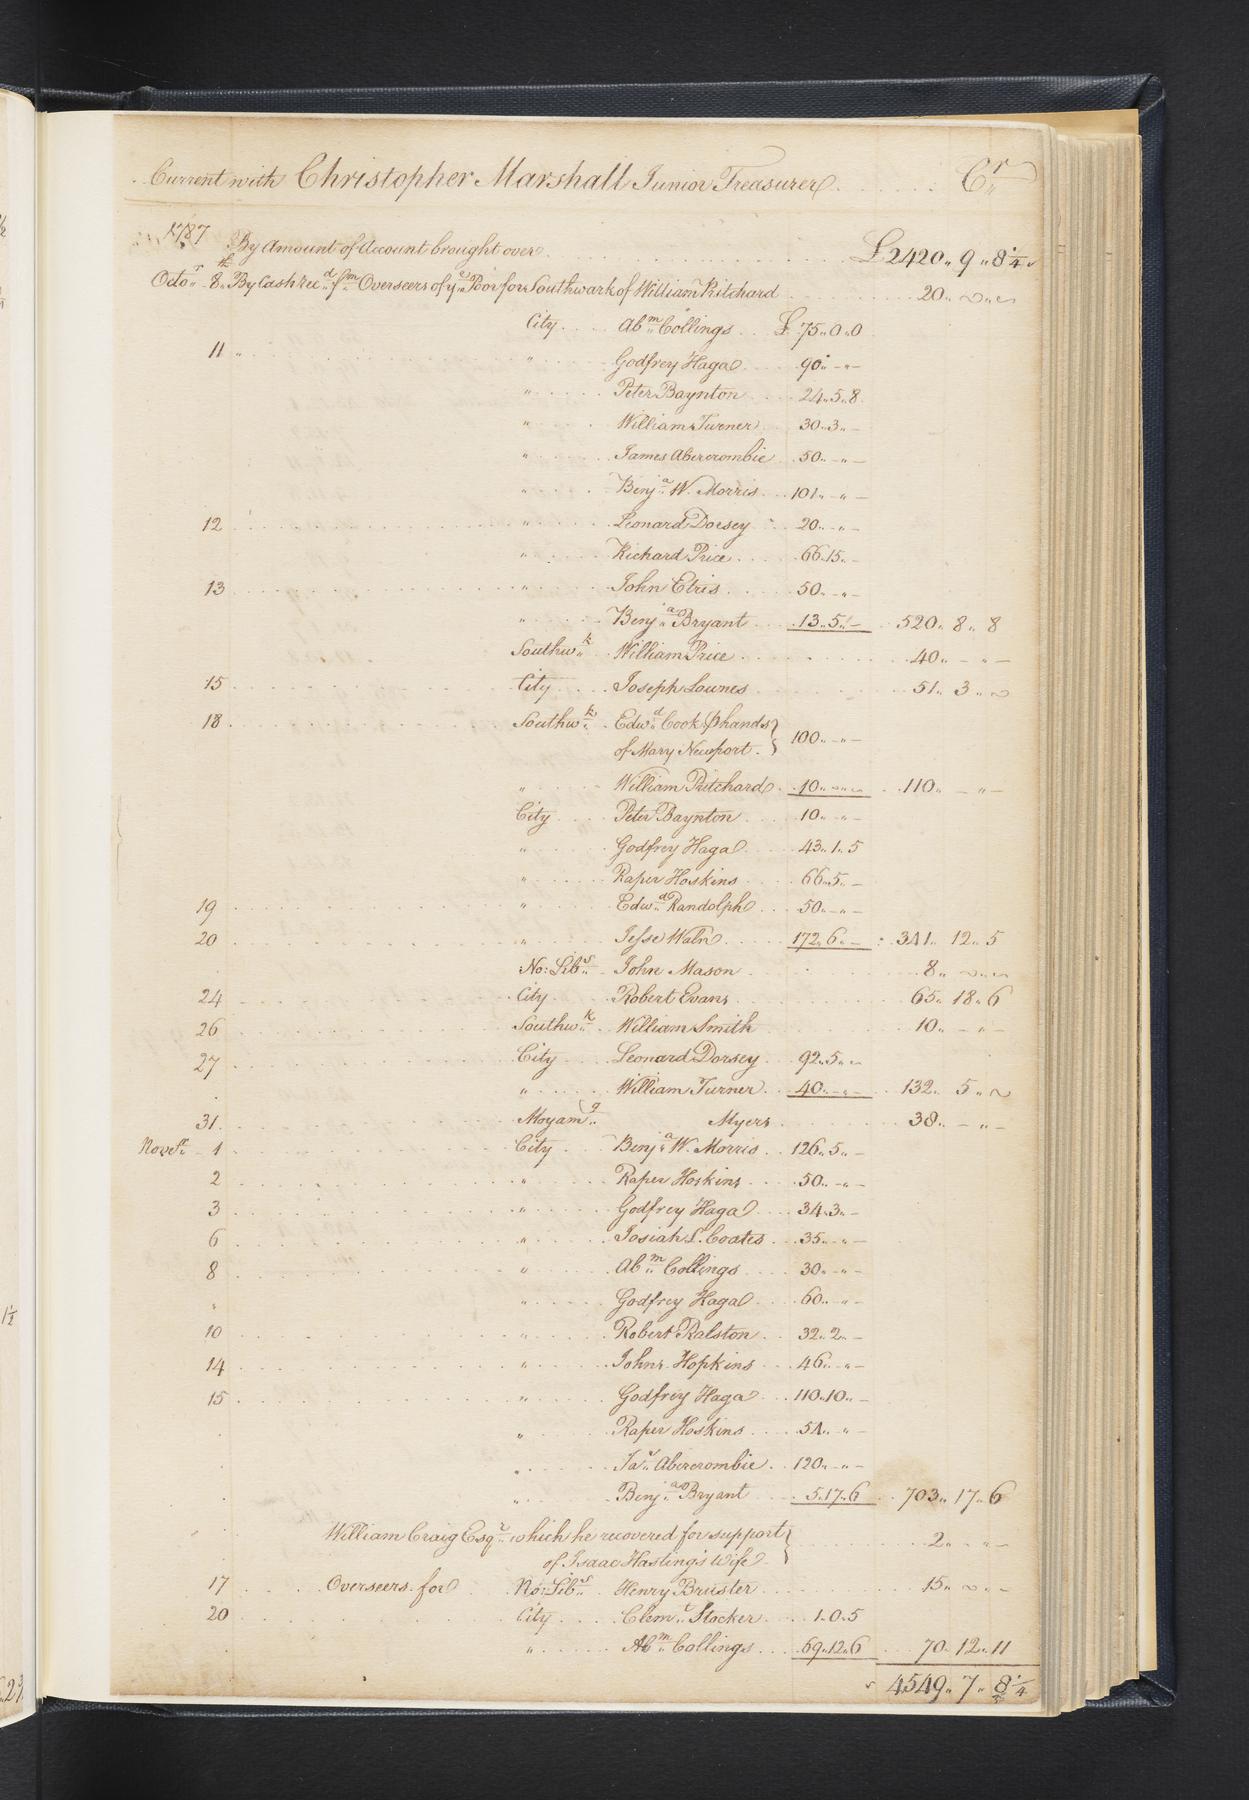 Current with Christopher Marshall Junior Treasurer Cr
1787 By Amount of Account brought over £2420 " 9 " 8 1/4
Octor 8th By Cash recd fm Overseers of ye Poor for Southwark of William Pritchard 20 " ~ " ~
City Abm Collings £ 75 " 0 " 0
11 " " Godfrey Haga 90 " - " -
" Peter Baynton 24 " 5 " 8
" William Turner 30 " 3 " -
" James Abercrombie 50 " - " -
" Benja W. Morris 101 " - " -
12 " Leonard Dorsey 20 " - " -
" Richard Price 66 " 15 " -
13 " John Elris 50 " - " -
" Benja Bryant 13 " 5 " - 520 " 8 " 8
Southwk William Price 40 " - " -
15 City Joseph Lownes 51 " 3 " ~
18 Southwk Edwd Cook ⅌ hands
of Mary Newport 100 " - " -
" William Pritchard 10 " ~ " ~ 110 " - " -
City Peter Baynton 10 " - " -
" Godfrey Haga 43 " 1 " 5
" Raper Hoskins 66 " 5 " -
19 " Edwd Randolph 50 " - " -
20 " Jesse Waln 172 " 6 " - 341 " 12 " 5
No: Libs John Mason 8 " ~ " ~
24 City Robert Evans 65 " 18 " 6
26 Southwk William Smith 10 " - " -
27 City Leonard Dorsey 92 " 5 " ~
" William Turner 40 " - " - 132 " 5 " ~
31 Moyamg Myers 38 " - " -
Novemr 1 City Benja W. Morris 126 " 5 " -
2 " Raper Hoskins 50 " - " -
3 " Godfrey Haga 34 " 3 " -
6 " Josiah L. Coates 35 " - " -
8 " Abm Collings 30 " - " -
" " Godfrey Haga 60 " - " -
10 " Robert Ralston 32 " 2 " -
14 " Johns Hopkins 46 " - " -
15 " Godfrey Haga 110 " 10 " -
" Raper Hoskins 54 " - " -
" Jas Abercrombie 120 " - " -
" Benja Bryant 5 " 17 " 6 703 " 17 " 6
William Craig Esqr which he recovered for support
of Isaac Hastings Wife 2 " - " -
17 Overseers for No: Libs Henry Bruster 15 " ~ " -
20 City Clemt Stocker 1 " 0 " 5
" Abm Collings 69 " 12 " 6 70 " 12 " 11
4549 " 7 " 8 1/4